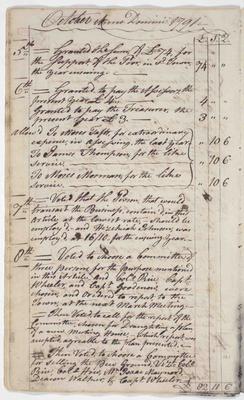 October Anno Domini 1791
£ S D
5th Granted the Sum of £74, for
the Support of the Poor, in sd Town
the year ensuing. 74 " "
6th Granted to pay the Assessors, the
present year £4. 4 " "
Granted to pay the Treasurer, the
present year £3 3 " "
allow'd To Moses Taft, for extraordinary
expence, in assessing, the last year " 10 6
To James Thompson, for the like
service. " 10 6
To Moses Morman, for the like
service. " 10 6
7th Voted that the Person that would
transact the Business, contain'd in this
article, at the lowest rate, should be
employ'd, and Hezekiah Johnson, was
employ'd at 16/10. for the ensuing year.
8th Voted to choose a Committee of
three persons, for the purpose mentioned
in this article, and Colo. Read, Capt.
Wheeler, and Capt. Goodenow, were
chosen, and Ordered to report to the
Town, at the next March Meeting.
Then Voted to call for the report of the
Committee, chosen for Draughting a Plan
of a new Meeting House, which report was
accepted, agreeable to the plan presented.
Then Voted to choose a Committee
for selling the Pew ground, Viz. Colo.
Deacon Capt. Wheeler
82 11 6